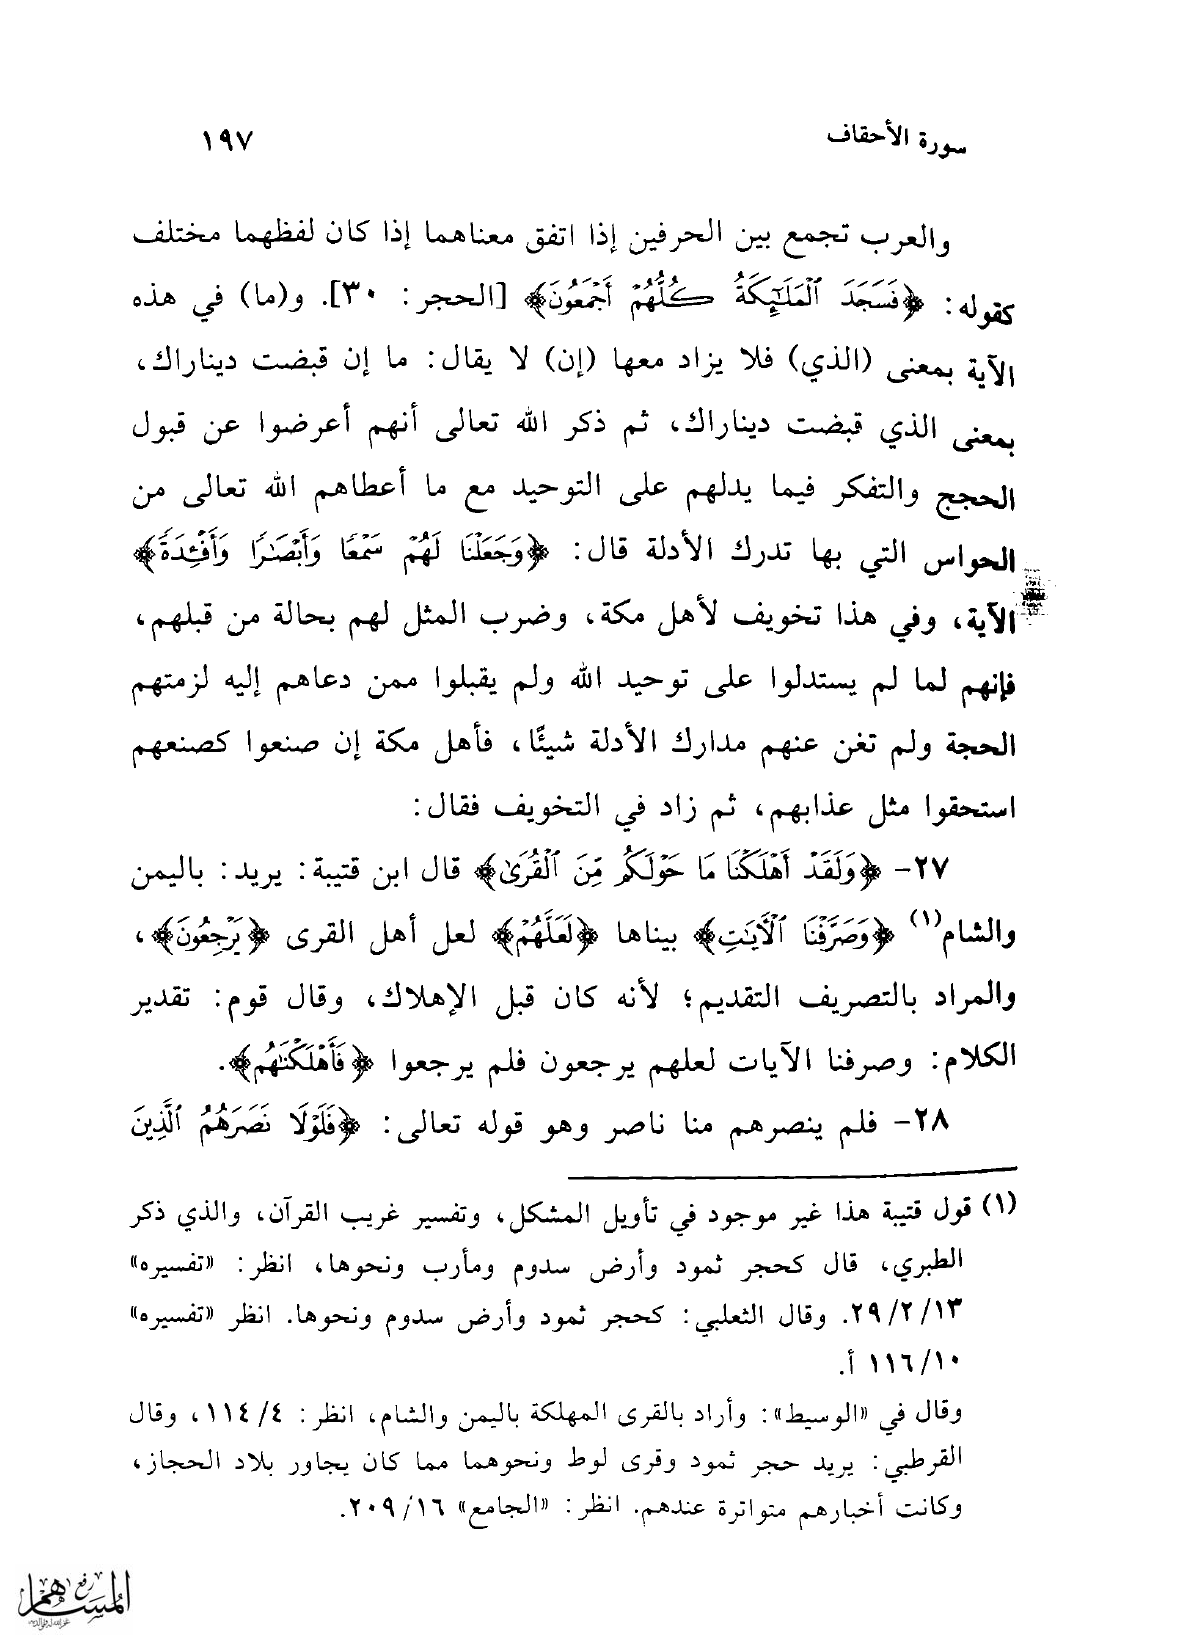 سورة الأحقاف ١٩٧
والعرب تجمع بين الحرفين إذا اتفق معناهما إذا كان لفظهما مختلف
كقوله: ﴿فَسَجَدَ ٱلْمَلَٰٓئِكَةُ كُلُّهُمْ أَجْمَعُونَ﴾ [الحجر: ٣٠]. و(ما) في هذه
الآية بمعنى (الذي) فلا يزاد معها (إن) لا يقال: ما إن قبضت ديناراك،
بمعنى الذي قبضت ديناراك، ثم ذكر الله تعالى أنهم أعرضوا عن قبول
الحجج والتفكر فيما يدلهم على التوحيد مع ما أعطاهم الله تعالى من
الحواس التي بها تدرك الأدلة قال: ﴿وَجَعَلْنَا لَهُمْ سَمْعًا وَأَبْصَٰرًا وَأَفْـِٔدَةً﴾
الآية، وفي هذا تخويف لأهل مكة، وضرب المثل لهم بحالة من قبلهم،
فإنهم لما لم يستدلوا على توحيد الله ولم يقبلوا ممن دعاهم إليه لزمتهم
الحجة ولم تغن عنهم مدارك الأدلة شيئًا، فأهل مكة إن صنعوا كصنعهم
استحقوا مثل عذابهم، ثم زاد في التخويف فقال:
٢٧- ﴿وَلَقَدْ أَهْلَكْنَا مَا حَوْلَكُم مِّنَ ٱلْقُرَىٰ﴾ قال ابن قتيبة: يريد: باليمن
والشام(١) ﴿وَصَرَّفْنَا ٱلْأَيَٰتِ﴾ بيناها ﴿لَعَلَّهُمْ﴾ لعل أهل القرى ﴿يَرْجِعُونَ﴾،
والمراد بالتصريف التقديم؛ لأنه كان قبل الإهلاك، وقال قوم: تقدير
الكلام: وصرفنا الآيات لعلهم يرجعون فلم يرجعوا ﴿فَأَهْلَكْنَٰهُم﴾.
٢٨- فلم ينصرهم منا ناصر وهو قوله تعالى: ﴿فَلَوْلَا نَصَرَهُمُ ٱلَّذِينَ
(١) قول قتيبة هذا غير موجود في تأويل المشكل، وتفسير غريب القرآن، والذي ذكر
الطبري، قال كحجر ثمود وأرض سدوم ومأرب ونحوها، انظر: «تفسيره»
٢٩/٢/١٣. وقال الثعلبي: كحجر ثمود وأرض سدوم ونحوها. انظر «تفسيره»
١١٦/١٠ أ.
وقال في «الوسيط»: وأراد بالقرى المهلكة باليمن والشام، انظر: ١١٤/٤، وقال
القرطبي: يريد حجر ثمود وقرى لوط ونحوهما مما كان يجاور بلاد الحجاز،
وكانت أخبارهم متواترة عندهم. انظر: «الجامع» ٢٠٩/١٦.
رفع
المساهم